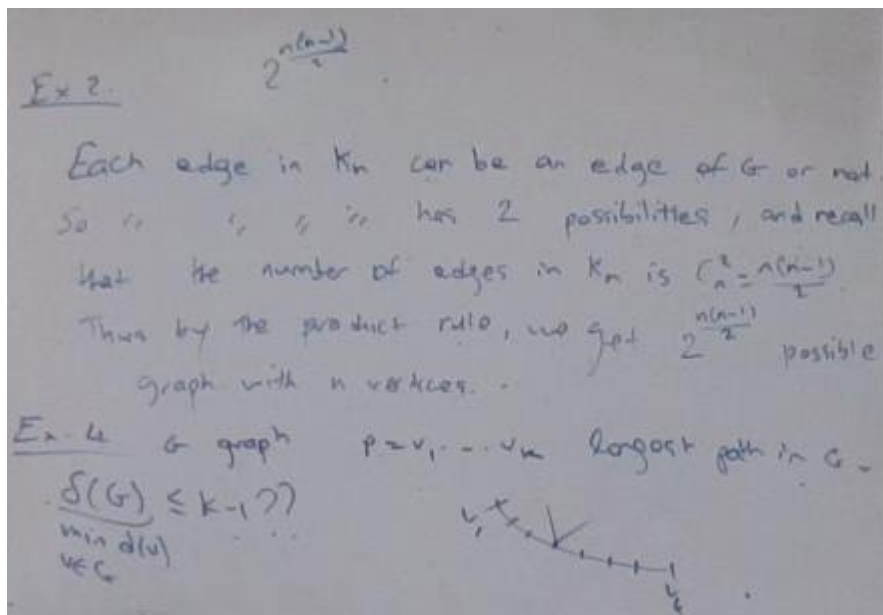 2^(n(n-1)/2) .
Ex 2.
Each edge in Kn can be an edge of G or not.
So ,, ,, ,, ,, has 2 possibilities, and recall
that the number of edges in Kn is C_n^2 = n(n-1)/2
Thus by the product rule, we get 2^(n(n-1)/2) possible
graph with n vertices. .
Ex. 4 G graph P = v1 .... vk longest path in G.
δ(G) ≤ k-1 ??
min d(v)
v∈G
v1
vk